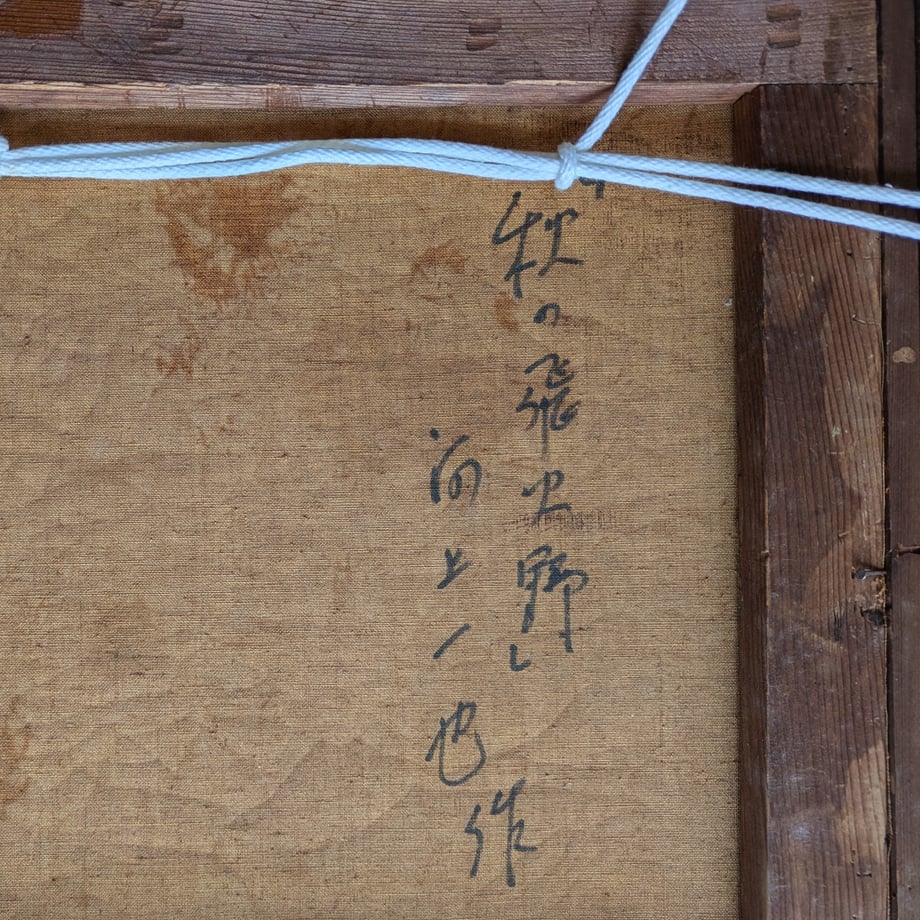 「秋の飛火野」
河上一也作